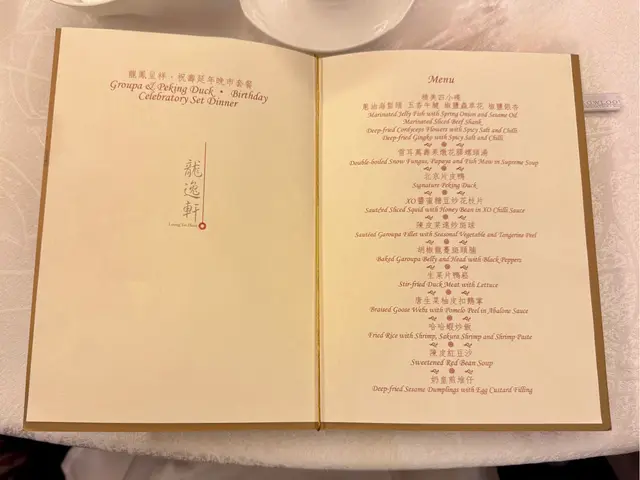 龍鳳呈祥・祝壽延年晚市套餐
Groupa & Peking Duck • Birthday
Celebratory Set Dinner
龍逸軒
Menu
精美四小碟
Marinated Jelly Fish with Spring Onion and Sesame Oil
Marinated Sliced Beef Shank
Deep-fried Cordyceps Flowers with Spicy Salt and Chilli
Deep-fried Gingko with Spicy Salt and Chilli
Double-boiled Snow Fungus, Papaya and Fish Maw in Supreme Soup
北京片皮鴨
Signature Peking Duck
XO醬蜜糖豆炒花枝片
Sautéed Sliced Squid with Honey Bean in XO Chilli Sauce
陳皮菜遠炒斑球
Sautéed Garoupa Fillet with Seasonal Vegetable and Tangerine Peel
胡椒龍躉焗頭腩
Baked Garoupa Belly and Head with Black Peppers
生菜片鴨崧
Stir-fried Duck Meat with Lettuce
唐生菜柚皮扣鵝掌
Braised Goose Webs with Pomelo Peel in Abalone Sauce
哈哈蝦炒飯
Fried Rice with Shrimp, Sakura Shrimp and Shrimp Paste
陳皮紅豆沙
Sweetened Red Bean Soup
奶皇煎堆仔
Deep-fried Sesame Dumplings with Egg Custard Filling